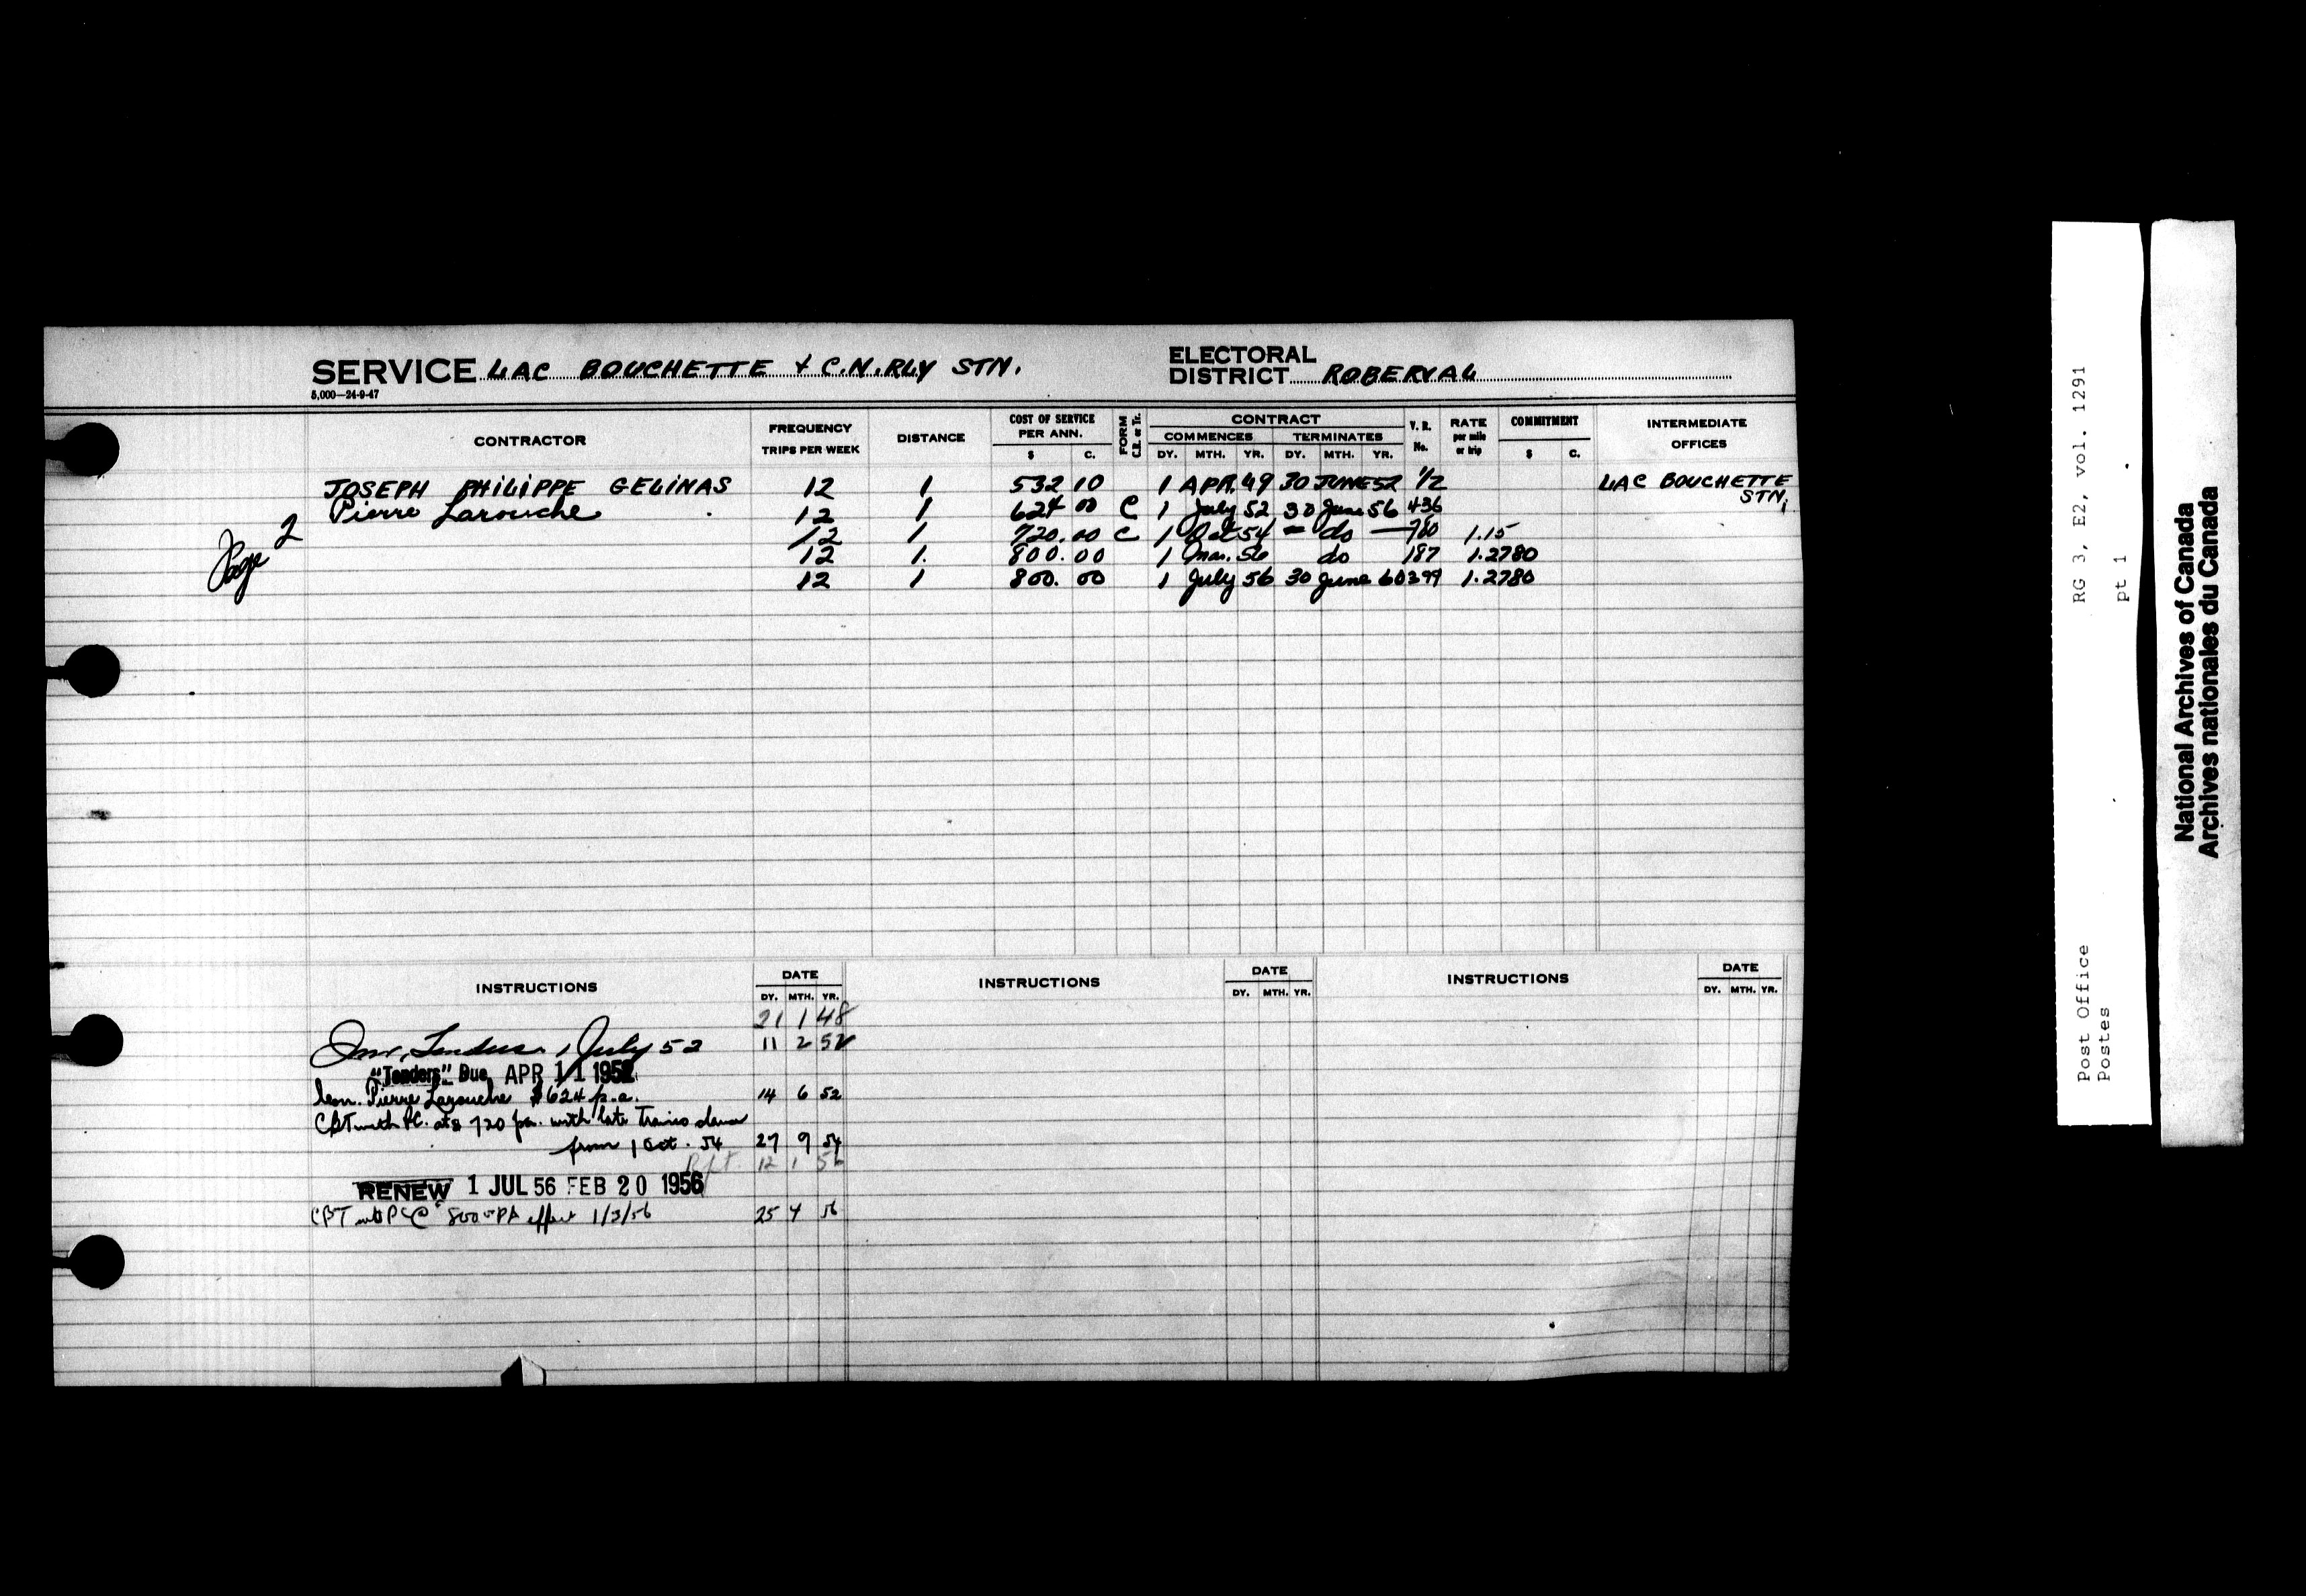 SERVICE LAC BOUCHETTE & C.N.RLY STN. ELECTORAL DISTRICT ROBERVAL
5,000—24-9-47
CONTRACTOR FREQUENCY TRIPS PER WEEK DISTANCE COST OF SERVICE PER ANN. $ C. FORM C.B. or Tr. CONTRACT COMMENCES DY. MTH. YR. TERMINATES DY. MTH. YR. V.R. No. RATE per mile or trip COMMITMENT $ C. INTERMEDIATE OFFICES
JOSEPH PHILIPPE GELINAS 12 1 532 10 1 APR. 49 30 JUNE 52 1/2 LAC BOUCHETTE STN.
Pierre Larouche 12 1 624 00 C 1 July 52 30 June 56 436
12 1 720.00 C 1 Oct 54 — do — 780 1.15
12 1. 800.00 1 Mar. 56 do 187 1.2780
12 1 800.00 1 July 56 30 June 60 399 1.2780
Page 2
INSTRUCTIONS DATE DY. MTH. YR. INSTRUCTIONS DATE DY. MTH. YR. INSTRUCTIONS DATE DY. MTH. YR.
21 1 48
Inv. Tenders 1 July 52 11 2 52
"Tenders" Due APR 11 1952
Pierre Larouche $624 p.a. 14 6 52
720 pa. with late Trains
from 1 Oct. 54 27 9 54
12 1 56
RENEW 1 JUL 56 FEB 20 1956
800 PA effect 1/3/56 25 4 56
RG 3, E2, vol. 1291
pt 1
Post Office
Postes
National Archives of Canada
Archives nationales du Canada